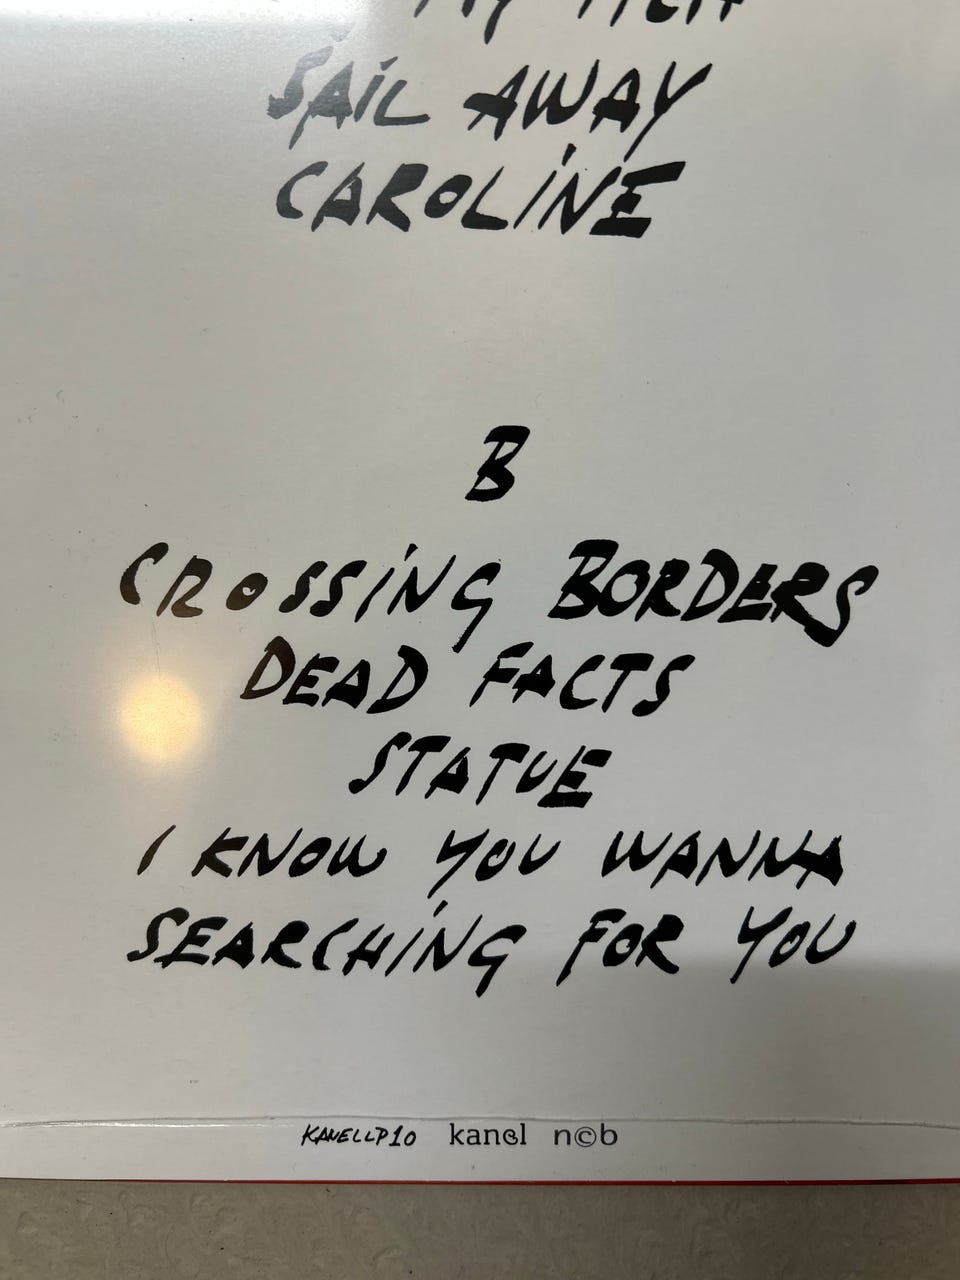 SAIL AWAY
CAROLINE
B
CROSSING BORDERS
DEAD FACTS
STATUE
I KNOW YOU WANNA
SEARCHING FOR YOU
KANELLP10 kanel n©b